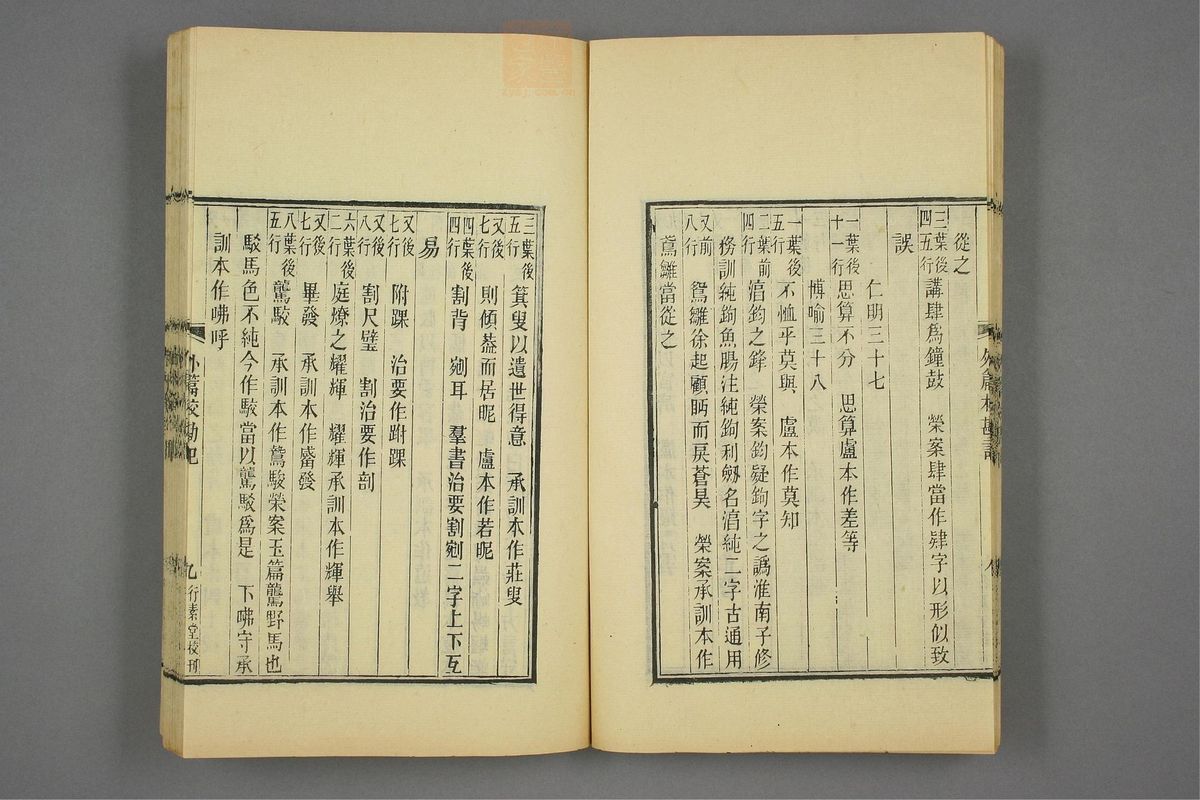 從之
三葉後四五行 講肆爲鐘鼓 榮案肆當作肄字以形似致
誤
仁明三十七
一葉後十一行 思算不分 思算盧本作差等
博喻三十八
一葉後五行 不恤乎莫與 盧本作莫知
二葉前四行 湻鈞之鋒 榮案鈞疑鉤字之譌淮南子修
務訓純鉤魚腸注純鉤利劒名湻純二字古通用
又前八行 鴛雛徐起顧眄而戾蒼昊 榮案承訓本作
鵷雛當從之
三葉後五行 箕叟以遺世得意 承訓本作莊叟
又後七行 則傾葢而居昵 盧本作若昵
四葉後四行 割背 剜耳 羣書治要割剜二字上下互
易
又後七行 附踝 治要作跗踝
又後八行 割尺璧 割治要作剖
六葉後二行 庭燎之耀輝 耀輝承訓本作輝舉
又後七行 畢發 承訓本作觱發
八葉後五行 驇駮 承訓本作騺駮榮案玉篇驇野馬也
駮馬色不純今作駮當以驇駮爲是 下咈守承
訓本作咈呼
外篇校勘記 九 行素堂校刊